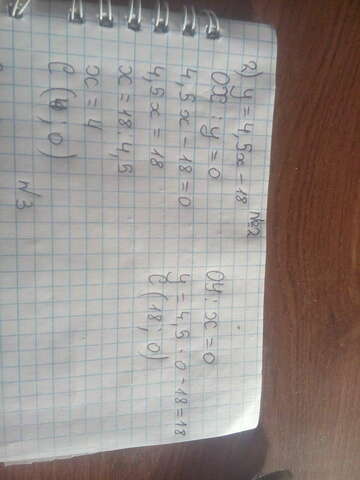 №2
2) y = 4,5x - 18
Ox: y = 0
4,5x - 18 = 0
4,5x = 18
x = 18 : 4,5
x = 4
C (4; 0)
Oy: x = 0
y = 4,5 · 0 - 18 = 18
C (18; 0)
№3